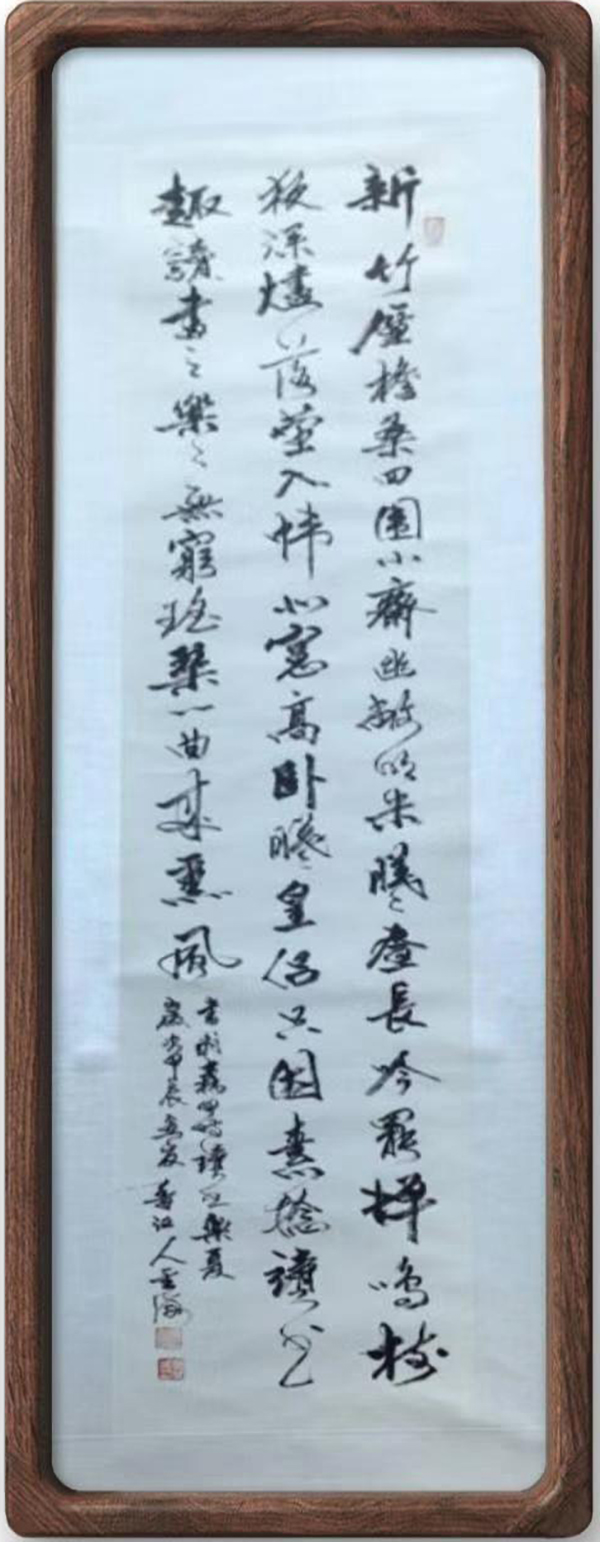 新竹壓檐桑四圍小齋幽敞明朱曦晝長吟罷蟬鳴樹
夜深燼落螢入幃北窗高臥曦皇侶只因素稔讀書
趣讀書之樂々無窮瑤琴一曲來薰風
書翁四時讀書樂夏
歲次甲辰香江人